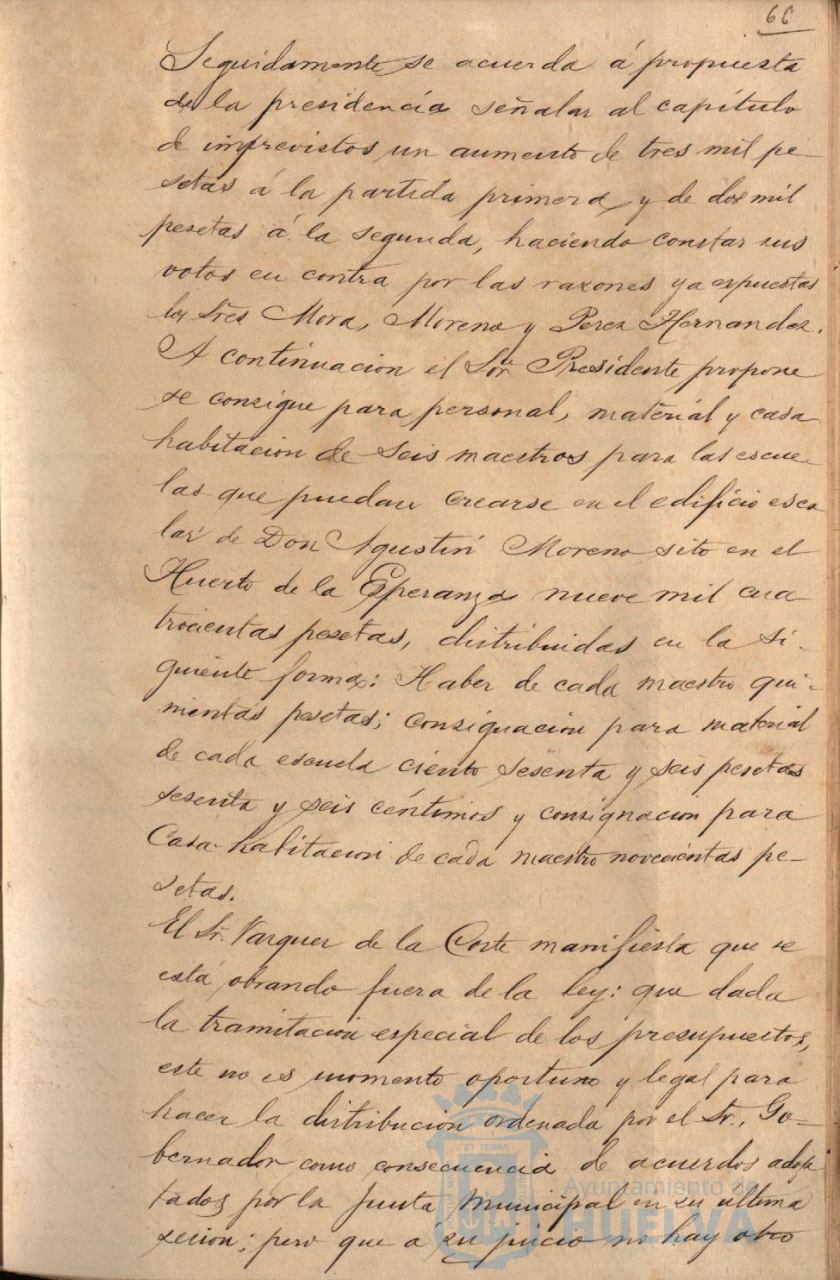 66
Seguidamente se acuerda á propuesta
de la presidencia señalar al capítulo
de imprevistos un aumento de tres mil pe-
setas á la partida primera y de dos mil
pesetas á la segunda, haciendo constar sus
votos en contra por las razones ya espuestas
los Sres Mora, Moreno y Perez Hernandez.
A continuacion el Sor Presidente propone
se consigne para personal, material y casa
habitacion de seis maestros para las escue-
las que puedan crearse en el edificio esco
lar de Don Agustin Moreno sito en el
Huerto de la Esperanza nueve mil cua
trocientas pesetas, distribuidas en la si-
guiente forma: Haber de cada maestro qui-
nientas pesetas; consignacion para material
de cada escuela ciento sesenta y seis pesetas
sesenta y seis céntimos y consignacion para
Casa-habitacion de cada maestro novecientas pe-
setas.
El Sr. Vazquez de la Corte manifiesta que se
está obrando fuera de la ley: que dada
la tramitacion especial de los presupuestos,
este no es momento oportuno y legal para
hacer la distribucion ordenada por el Sr. Go-
bernador como consecuencia de acuerdos adop
tados por la Junta Municipal en su ultima
sesion; pero que á su juicio no hay otro
ET TERRAE
Ayuntamiento de
HUELVA